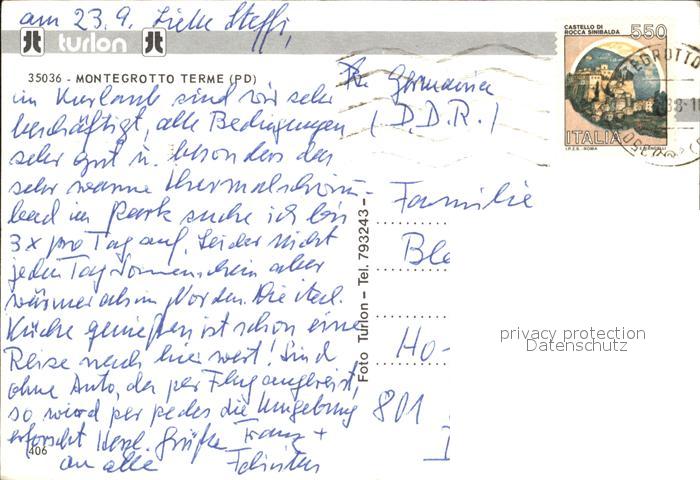 am 23.9. Liebe Steffi,
turlon
35036 - MONTEGROTTO TERME (PD)
im Kurlaub sind wir sehr
beschäftigt, alle Bedingungen
sehr gut u. besonders das
sehr warme Thermalschwimm-
bad im Park suche ich bis
3x pro Tag auf. Leider nicht
jeden Tag Sonnenschein aber
wärmer als im Norden. Die ital.
Küche genießen ist schon eine
Reise nach hier wert! Sind
ohne Auto, da per Flug angereist,
so wird per pedes die Umgebung
erforscht. Herzl. Grüße Franz +
an alle
406
Foto Turlon - Tel. 793243 -
CASTELLO DI
ROCCA SINIBALDA
550
ITALIA
I.P.Z.S. ROMA
Germania
(D.D.R.)
Familie
Ble
Ho-
801
privacy protection
Datenschutz